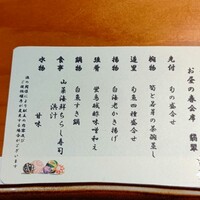 お昼の春会席 翡翠
先付 旬の盛合せ
椀物 筍と若芽の茶碗蒸し
造里 旬魚四種盛合せ
揚物 白海老かき揚げ
強肴 蛍烏賊酢味噌和え
鍋物 白魚すき鍋
食事 山菜海鮮ちらし寿司
浜汁
水物 甘味